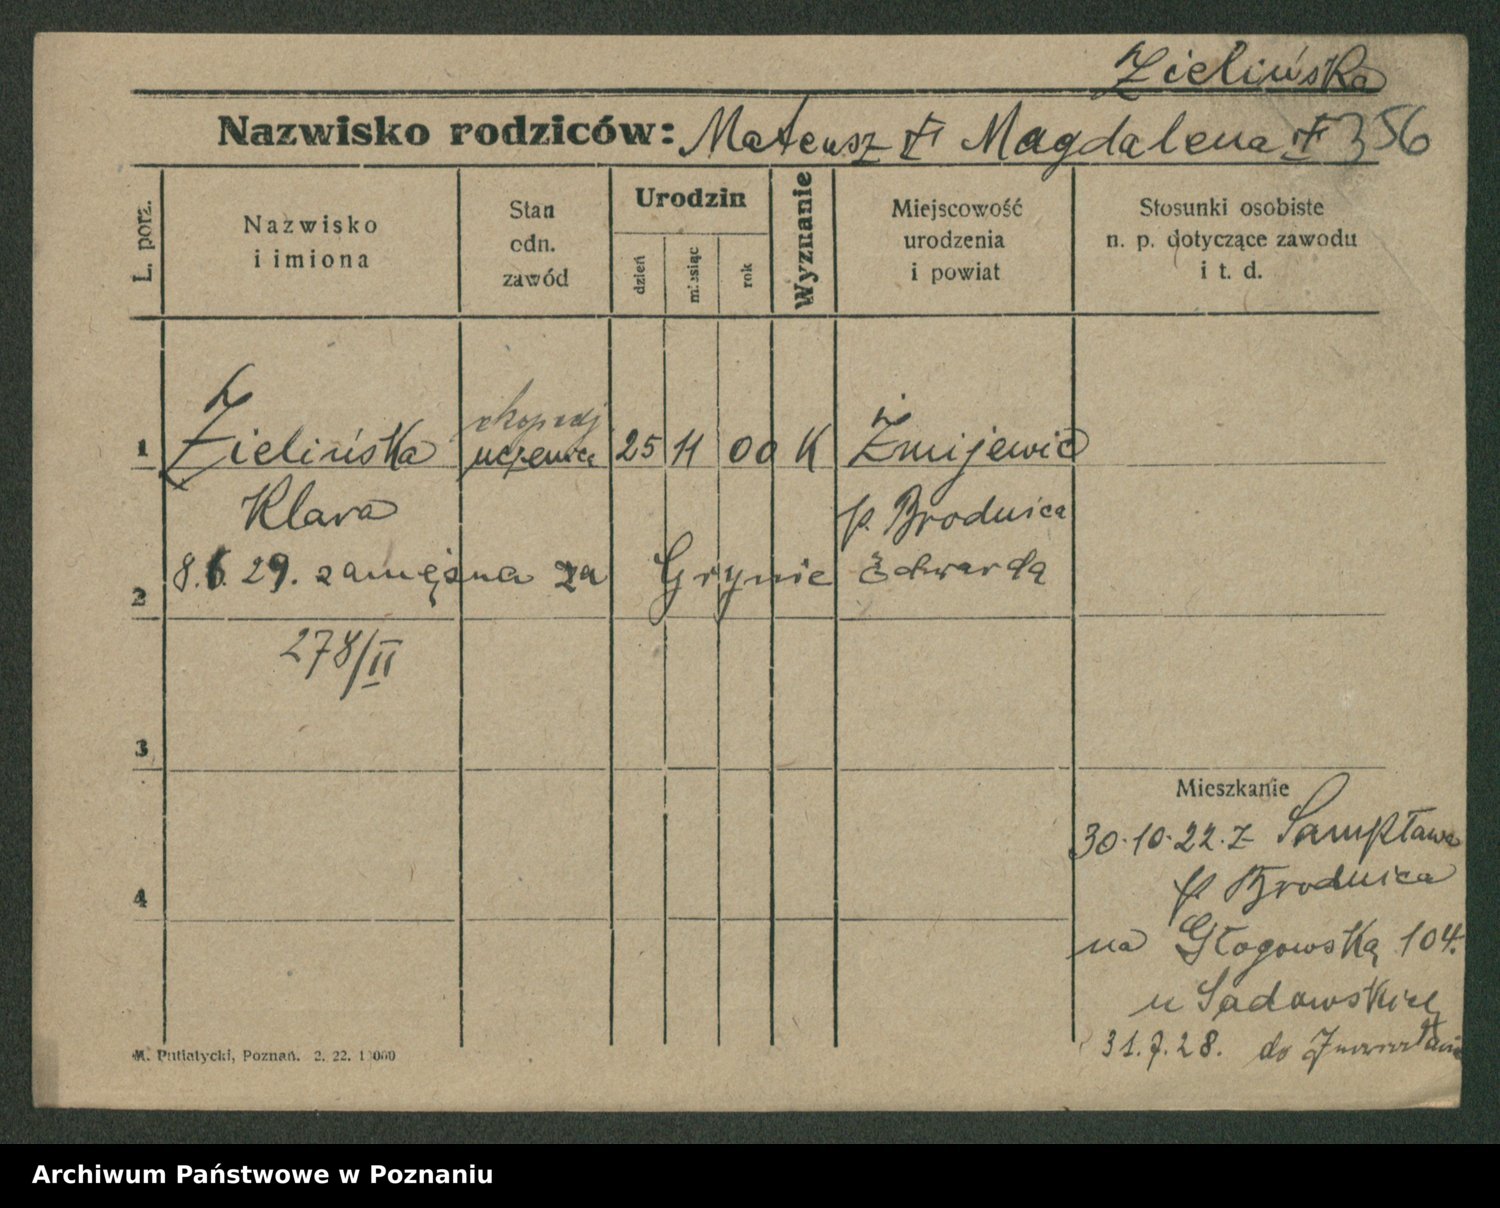 Zielińska
Nazwisko rodziców: Mateusz Magdalena 356
L. porz.
Nazwisko
i imiona
Stan
odn.
zawód
Urodzin
dzień
miesiąc
rok
Wyznanie
Miejscowość
urodzenia
i powiat
Stosunki osobiste
n. p. dotyczące zawodu
i t. d.
1 Zielińska uczenica 25 11 00 K Żmijewie
Klara p. Brodnica
2 8.6.29. zamężna za Grynie Edwardą
278/II
3
Mieszkanie
30.10.22. z Sampława
p Brodnica
4
na Głogowską 104.
u Sadowskiej
31.7.28. do
M. Putiatycki, Poznań. 2. 22. 1000
Archiwum Państwowe w Poznaniu